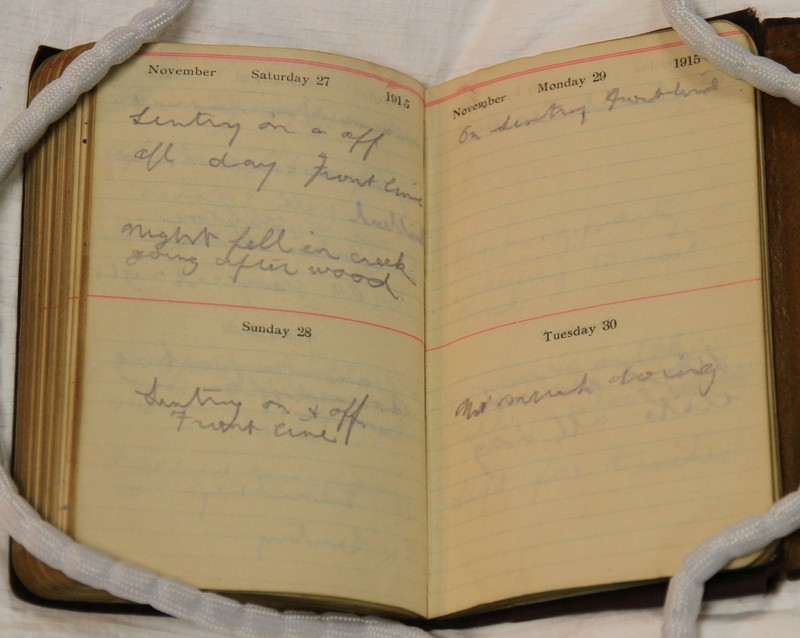 November Saturday 27 1915
Sentry on a off
all day Front line
night fell in creek
going after wood.
Sunday 28
Sentry on & off.
Front Line
November Monday 29 1915
On Sentry Front line
Tuesday 30
Not much doing